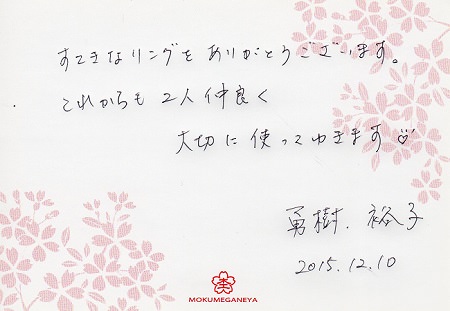 すてきなリングをありがとうございます。
これからも2人仲良く
大切に使ってゆきます♡
勇樹. 裕子
2015.12.10
MOKUMEGANEYA